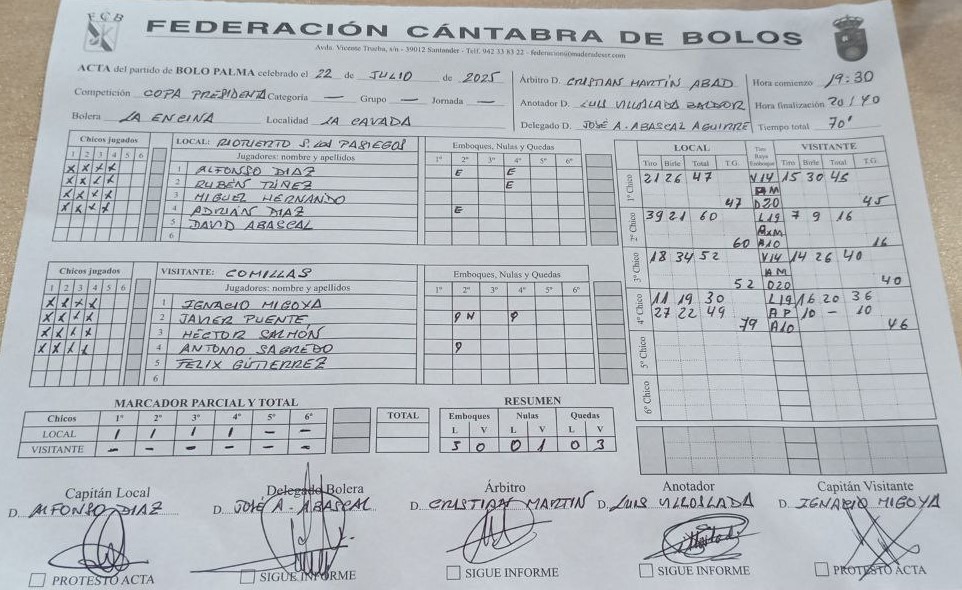 FCB
FEDERACIÓN CÁNTABRA DE BOLOS
Avda. Vicente Trueba, s/n - 39012 Santander - Telf. 942 33 83 22 - federacion@maderadeser.com
ACTA del partido de BOLO PALMA celebrado el 22 de JULIO de 2025
Competición COPA PRESIDENTA Categoría — Grupo — Jornada —
Bolera LA ENCINA Localidad LA CAVADA
Árbitro D. CRISTIAN MARTÍN ABAD Hora comienzo 19:30
Anotador D. LUIS VILLALADA Hora finalización 20:40
Delegado D. JOSÉ A. ABASCAL AGUIRRE Tiempo total 70'
Chicos jugados LOCAL: RIOTUERTO S. LOS PASIEGOS Emboques, Nulas y Quedas
1 2 3 4 5 6 Jugadores: nombre y apellidos 1º 2º 3º 4º 5º 6º
X X X X 1 ALFONSO DIAZ E E
X X X X 2 RUBÉN TÚÑEZ E
X X X X 3 MIGUEL HERNANDO
X X X X 4 ADRIÁN DIAZ E
5 DAVID ABASCAL
6
Chicos jugados VISITANTE: COMILLAS Emboques, Nulas y Quedas
1 2 3 4 5 6 Jugadores: nombre y apellidos 1º 2º 3º 4º 5º 6º
X X X X 1 IGNACIO MIGOYA
X X X X 2 JAVIER PUENTE Q N Q
X X X X 3 HÉCTOR SALMÓN
X X X X 4 ANTONIO SAGREDO Q
5 FELIX GÚTIERREZ
6
LOCAL VISITANTE
Tiro Birle Total T.G. Tiro Raya Emboque Tiro Birle Total T.G.
1º Chico 21 26 47 V14 15 30 45
AM
47 D20 45
2º Chico 39 21 60 L19 7 9 16
60 A10 16
3º Chico 18 34 52 V14 14 26 40
AM
52 D20 40
4º Chico 11 19 30 L19 16 20 36
27 22 49 AP 10 - 10
79 A10 46
5º Chico
6º Chico
MARCADOR PARCIAL Y TOTAL
Chicos 1º 2º 3º 4º 5º 6º TOTAL
LOCAL 1 1 1 1 – –
VISITANTE – – – – – –
RESUMEN
Emboques Nulas Quedas
L V L V L V
5 0 0 1 0 3
Capitán Local Delegado Bolera Árbitro Anotador Capitán Visitante
D. ALFONSO DIAZ D. JOSÉ A. ABASCAL D. CRISTIAN MARTIN D. LUIS VILLOSLADA D. IGNACIO MIGOYA
PROTESTO ACTA SIGUE INFORME SIGUE INFORME SIGUE INFORME PROTESTO ACTA